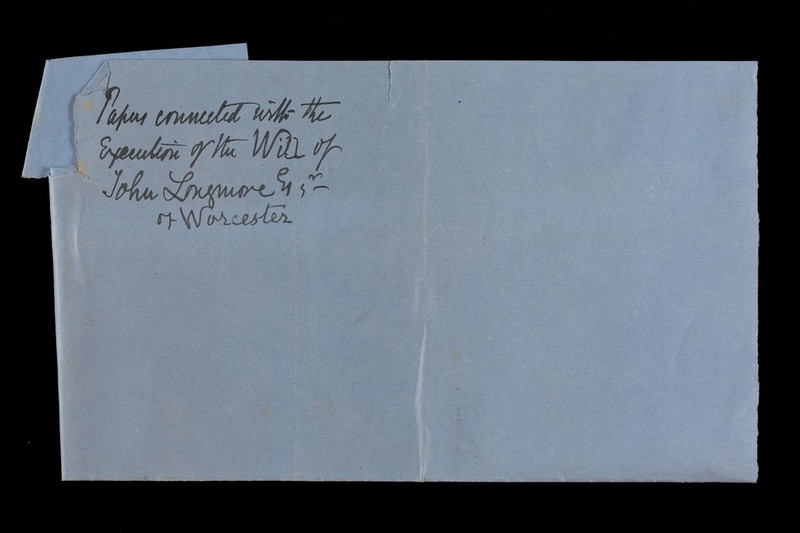 Papers connected with the
Execution of the Will of
John Longmore Esqr
of Worcester